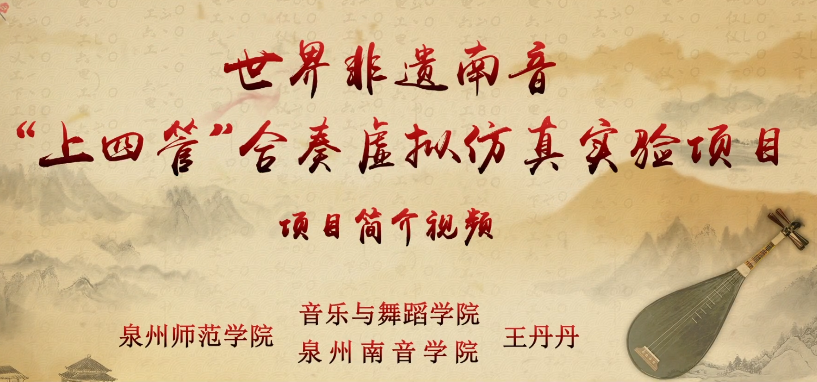 世界非遗南音
“上四管”合奏虚拟仿真实验项目
项目简介视频
音乐与舞蹈学院
泉州师范学院 王丹丹
泉州南音学院